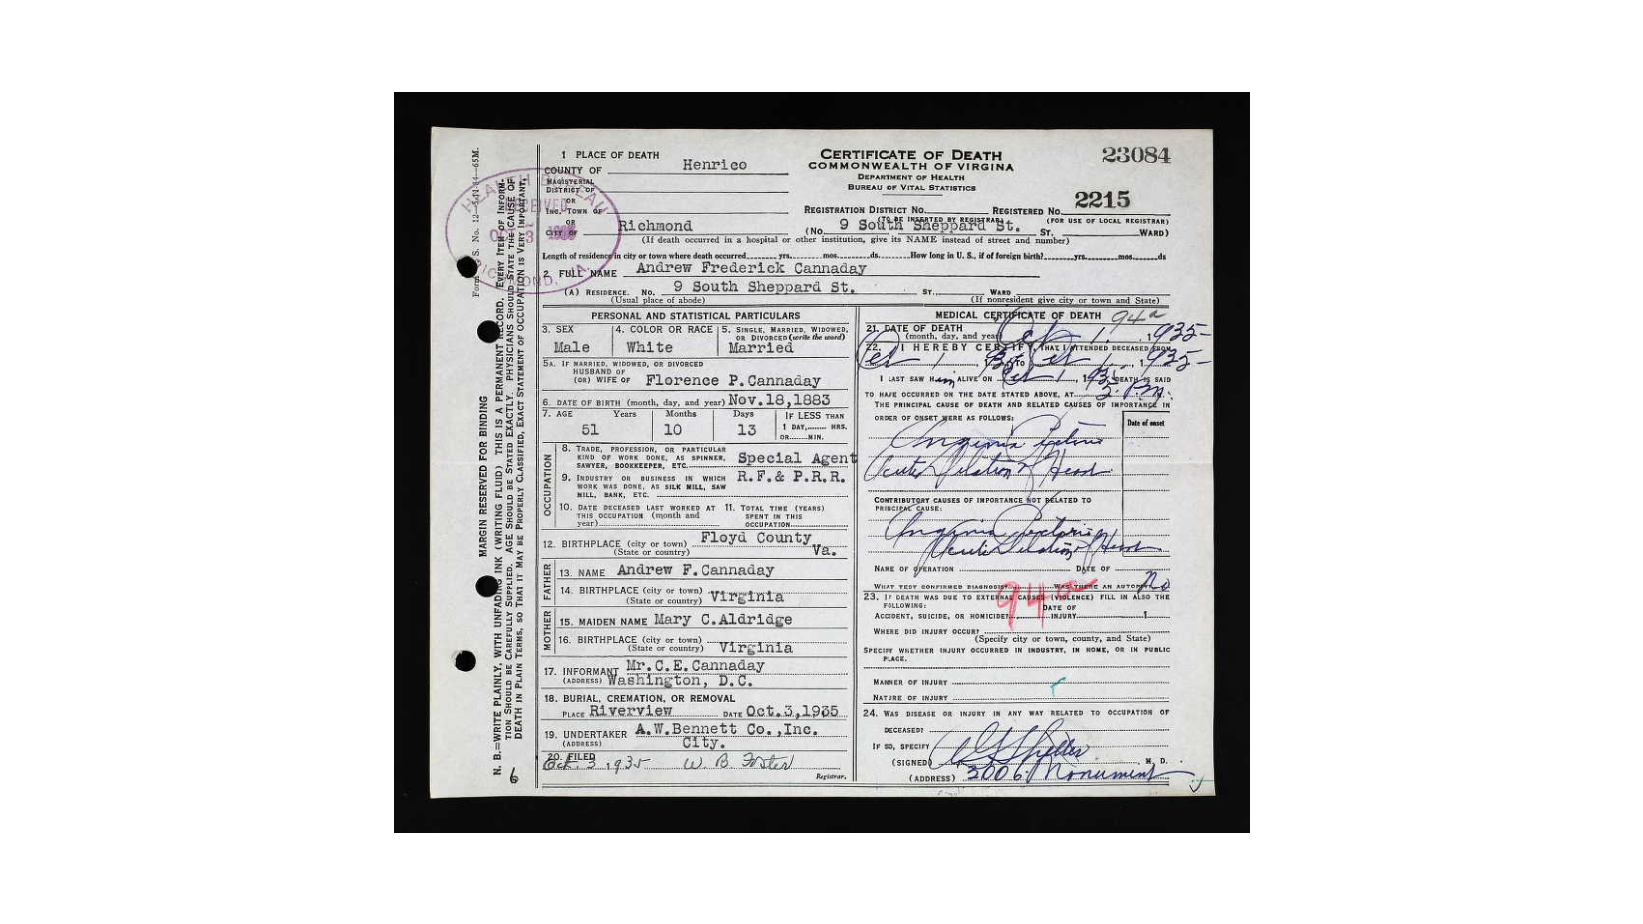 1 PLACE OF DEATH
COUNTY OF Henrico
MAGISTERIAL
DISTRICT OF
OR
INC. TOWN OF
OR
CITY OF Richmond
CERTIFICATE OF DEATH
COMMONWEALTH OF VIRGINIA
DEPARTMENT OF HEALTH
BUREAU OF VITAL STATISTICS
23084
2215
REGISTRATION DISTRICT No. REGISTERED No.
(TO BE INSERTED BY REGISTRAR) (FOR USE OF LOCAL REGISTRAR)
(No. 9 South Sheppard St. ST. WARD)
(If death occurred in a hospital or other institution, give its NAME instead of street and number)
Length of residence in city or town where death occurred yrs. mos. ds. How long in U. S., if of foreign birth? yrs. mos. ds
2. FULL NAME Andrew Frederick Cannaday
(A) RESIDENCE. No. 9 South Sheppard St. ST. WARD
(Usual place of abode) (If nonresident give city or town and State)
PERSONAL AND STATISTICAL PARTICULARS
3. SEX 4. COLOR OR RACE 5. SINGLE, MARRIED, WIDOWED,
OR DIVORCED (write the word)
Male White Married
5A. IF MARRIED, WIDOWED, OR DIVORCED
HUSBAND OF
(OR) WIFE OF Florence P.Cannaday
6. DATE OF BIRTH (month, day, and year) Nov.18,1883
7. AGE Years Months Days IF LESS THAN
1 DAY, HRS.
51 10 13
OR MIN.
OCCUPATION
8. TRADE, PROFESSION, OR PARTICULAR
KIND OF WORK DONE, AS SPINNER,
SAWYER, BOOKKEEPER, ETC. Special Agent
9. INDUSTRY OR BUSINESS IN WHICH
WORK WAS DONE, AS SILK MILL, SAW
MILL, BANK, ETC. R.F.& P.R.R.
10. DATE DECEASED LAST WORKED AT
THIS OCCUPATION (month and
year)
11. TOTAL TIME (YEARS)
SPENT IN THIS
OCCUPATION
12. BIRTHPLACE (city or town) Floyd County
(State or country) Va.
FATHER
13. NAME Andrew F.Cannaday
14. BIRTHPLACE (city or town)
(State or country) Virginia
MOTHER
15. MAIDEN NAME Mary C.Aldridge
16. BIRTHPLACE (city or town)
(State or country) Virginia
17. INFORMANT Mr.C.E.Cannaday
(ADDRESS) Washington, D.C.
18. BURIAL, CREMATION, OR REMOVAL
PLACE Riverview DATE Oct.3,1935
19. UNDERTAKER A.W.Bennett Co.,Inc.
(ADDRESS) City.
20. FILED
Oct. 3, 1935 W. B. Foster
Registrar.
MEDICAL CERTIFICATE OF DEATH 94a
21. DATE OF DEATH
(month, day, and year) Oct 1, 1935
22. I HEREBY CERTIFY, THAT I ATTENDED DECEASED FROM
Oct 1, 1935 TO Oct 1, 1935
I LAST SAW Him ALIVE ON Oct 1, 1935 DEATH IS SAID
TO HAVE OCCURRED ON THE DATE STATED ABOVE, AT PM.
THE PRINCIPAL CAUSE OF DEATH AND RELATED CAUSES OF IMPORTANCE IN
ORDER OF ONSET WERE AS FOLLOWS:
Date of onset
Angina Pectoris
Acute Dilation of Heart
CONTRIBUTORY CAUSES OF IMPORTANCE NOT RELATED TO
PRINCIPAL CAUSE:
Angina Pectoris
Acute Dilation of Heart
NAME OF OPERATION DATE OF
WHAT TEST CONFIRMED DIAGNOSIS? WAS THERE AN AUTOPSY? No
94a
23. IF DEATH WAS DUE TO EXTERNAL CAUSES (VIOLENCE) FILL IN ALSO THE
FOLLOWING: DATE OF
ACCIDENT, SUICIDE, OR HOMICIDE? INJURY 1
WHERE DID INJURY OCCUR?
(Specify city or town, county, and State)
SPECIFY WHETHER INJURY OCCURRED IN INDUSTRY, IN HOME, OR IN PUBLIC
PLACE.
MANNER OF INJURY
NATURE OF INJURY
24. WAS DISEASE OR INJURY IN ANY WAY RELATED TO OCCUPATION OF
DECEASED?
IF SO, SPECIFY
(SIGNED) M. D.
(ADDRESS) 2006 Monument
MARGIN RESERVED FOR BINDING
N. B.—WRITE PLAINLY, WITH UNFADING INK (WRITING FLUID) THIS IS A PERMANENT RECORD. EVERY ITEM OF INFORM-
TION SHOULD BE CAREFULLY SUPPLIED. AGE SHOULD BE STATED EXACTLY. PHYSICIANS SHOULD STATE THE CAUSE OF
DEATH IN PLAIN TERMS, SO THAT IT MAY BE PROPERLY CLASSIFIED, EXACT STATEMENT OF OCCUPATION IS VERY IMPORTANT.
HEALTH BUREAU
RECEIVED
RICHMOND, VA.